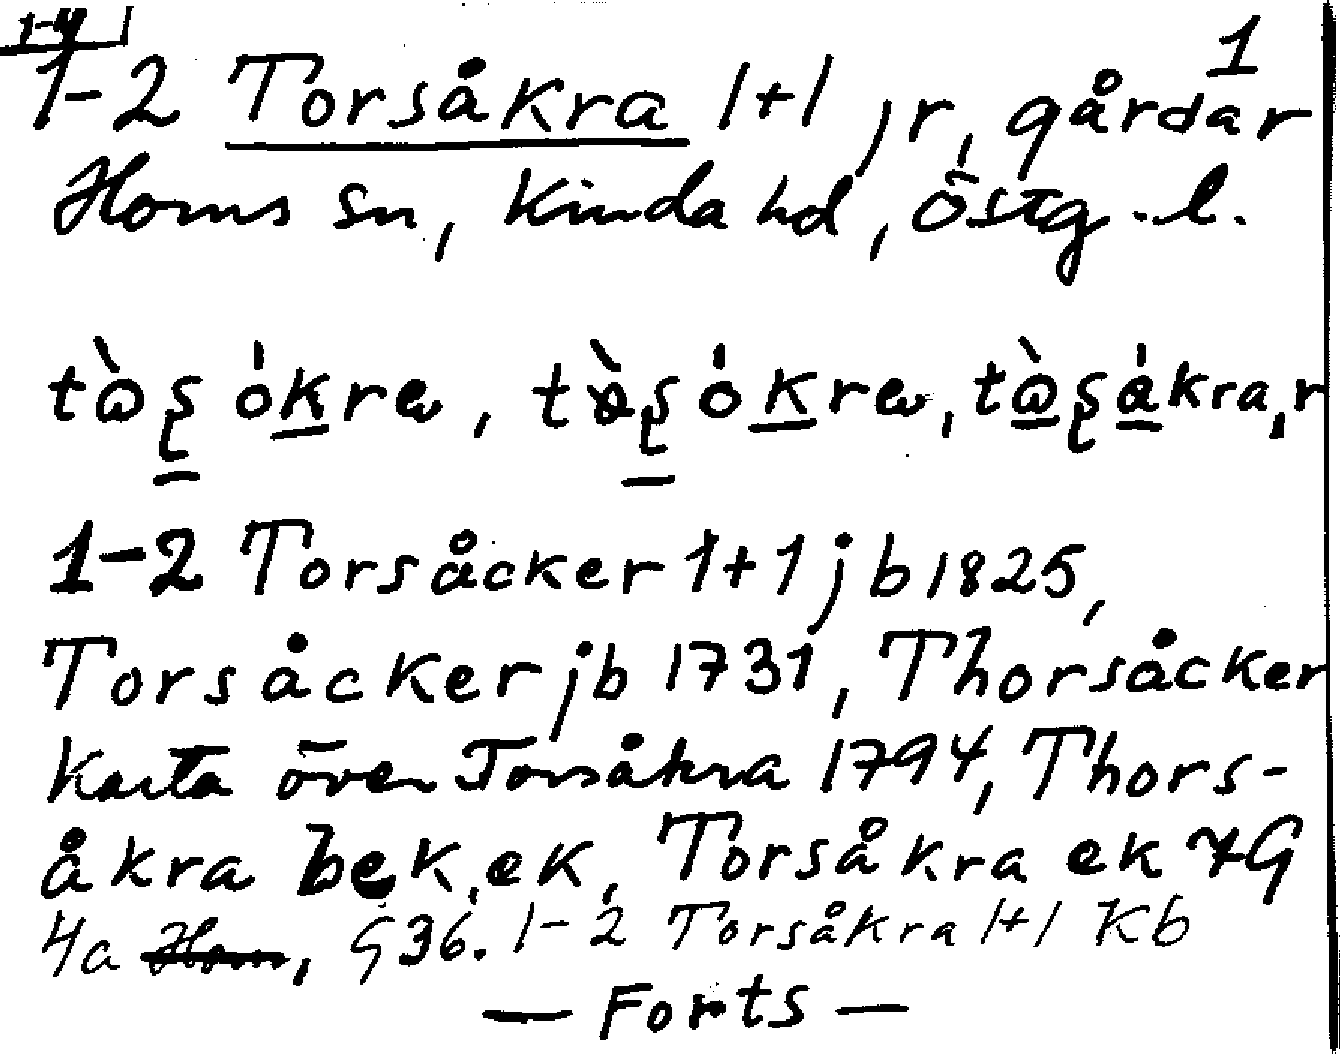 1-4
1
1-2 Torsåkra 1+1, r, gårdar
Horns sn, Kinda hd, Östg.l.
1-2 Torsåcker 1+1 jb 1825,
Torsåcker jb 1731, Thorsåcker
Karta över Torsåkra 1794, Thors-
åkra bek, ek, Torsåkra ek 7G
4a Horn, G36. 1-2 Torsåkra 1+1 Kb
— Forts —